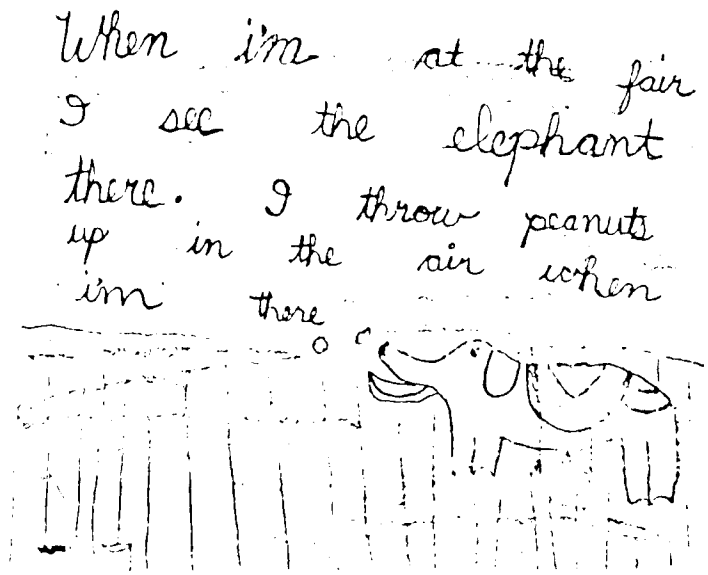 When i'm at the fair
I see the elephant
there. I throw peanuts
up in the air when
i'm there